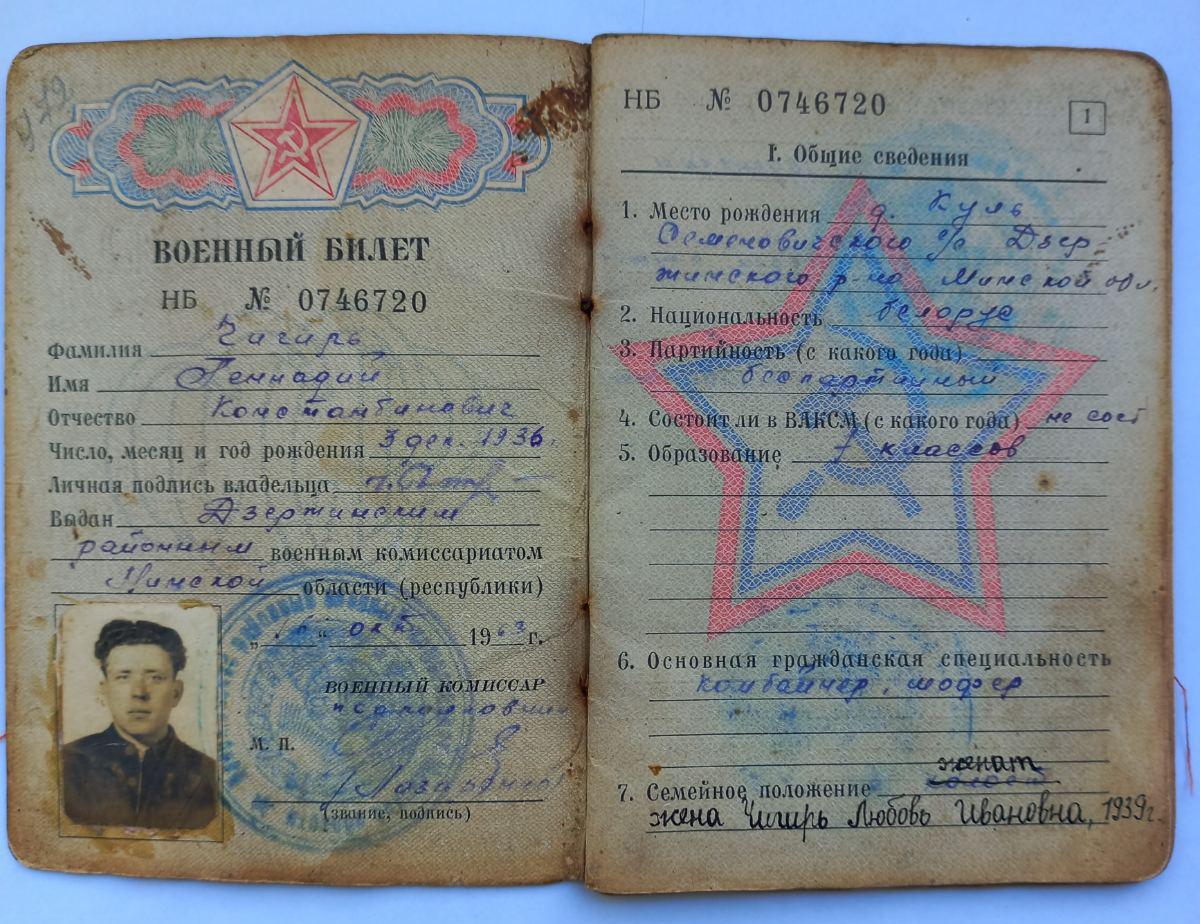 ВОЕННЫЙ БИЛЕТ
НБ № 0746720
Фамилия Чигирь
Имя Геннадий
Отчество Константинович
Число, месяц и год рождения 3 дек. 1936г.
Личная подпись владельца
Выдан Дзержинским
районным военным комиссариатом
Минской области (республики)
"6" окт 1963 г.
ВОЕННЫЙ КОМИССАР
М. П.
(звание, подпись)
НБ № 0746720
1
I. Общие сведения
1. Место рождения д. Куль
Семеновичского с/с Дзер
жинского р-на Минской обл.
2. Национальность белорус
3. Партийность (с какого года)
беспартийный
4. Состоит ли в ВЛКСМ (с какого года) не сост
5. Образование 7 классов
6. Основная гражданская специальность
комбайнер, шофер
7. Семейное положение женат
жена Чигирь Любовь Ивановна, 1939г.